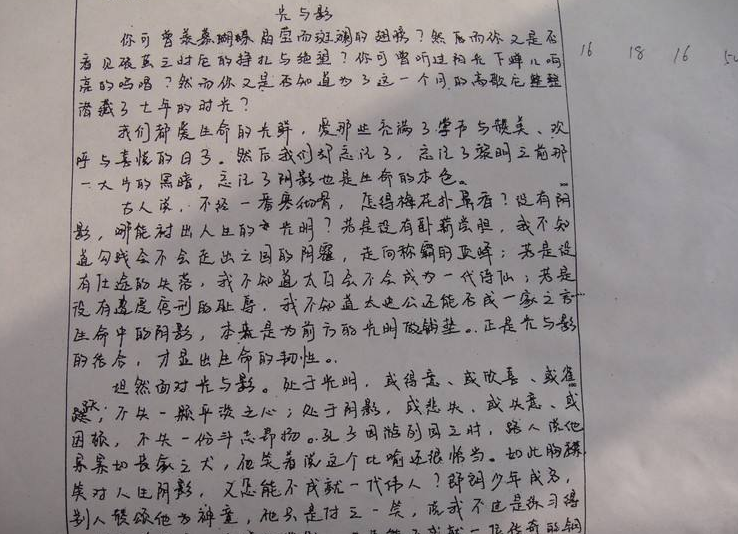 光与影
你可曾羡慕蝴蝶晶莹而斑斓的翅膀？然而你又是否
看见破茧之时它的挣扎与绝望？你可曾听过阳光下蝉儿响
亮的鸣唱？然而你又是否知道为了这一个月的高歌它整整
潜藏了七年的时光？
我们都爱生命的光鲜，爱那些充满了掌声与赞美、欢
呼与喜悦的日子。然后我们却忘记了，忘记了黎明之前那
一大片的黑暗，忘记了阴影也是生命的本色。
古人说，不经一番寒彻骨，怎得梅花扑鼻香？没有阴
影，哪能衬出人生的光明？若是没有卧薪尝胆，我不知
道勾践会不会走出亡国的阴霾，走向称霸的巅峰；若是没
有仕途的失落，我不知道太白会不会成为一代诗仙；若是
没有遭受宫刑的耻辱，我不知道太史公还能否成一家之言…
生命中的阴影，本就是为前方的光明做铺垫。正是光与影
的结合，才显出生命的韧性。
坦然面对光与影。处于光明，或得意、或欣喜、或雀
跃，不失一颗平淡之心；处于阴影，或悲失、或失意、或
困顿，不失一份斗志昂扬。孔子周游列国之时，路人说他
累累如丧家之犬，他笑着说这个比喻还很恰当。如此胸襟
笑对人生阴影，又怎能不成就一代伟人？郎朗少年成名，
别人赞颂他为神童，他只是付之一笑，说我不过是练习得
16 18 16